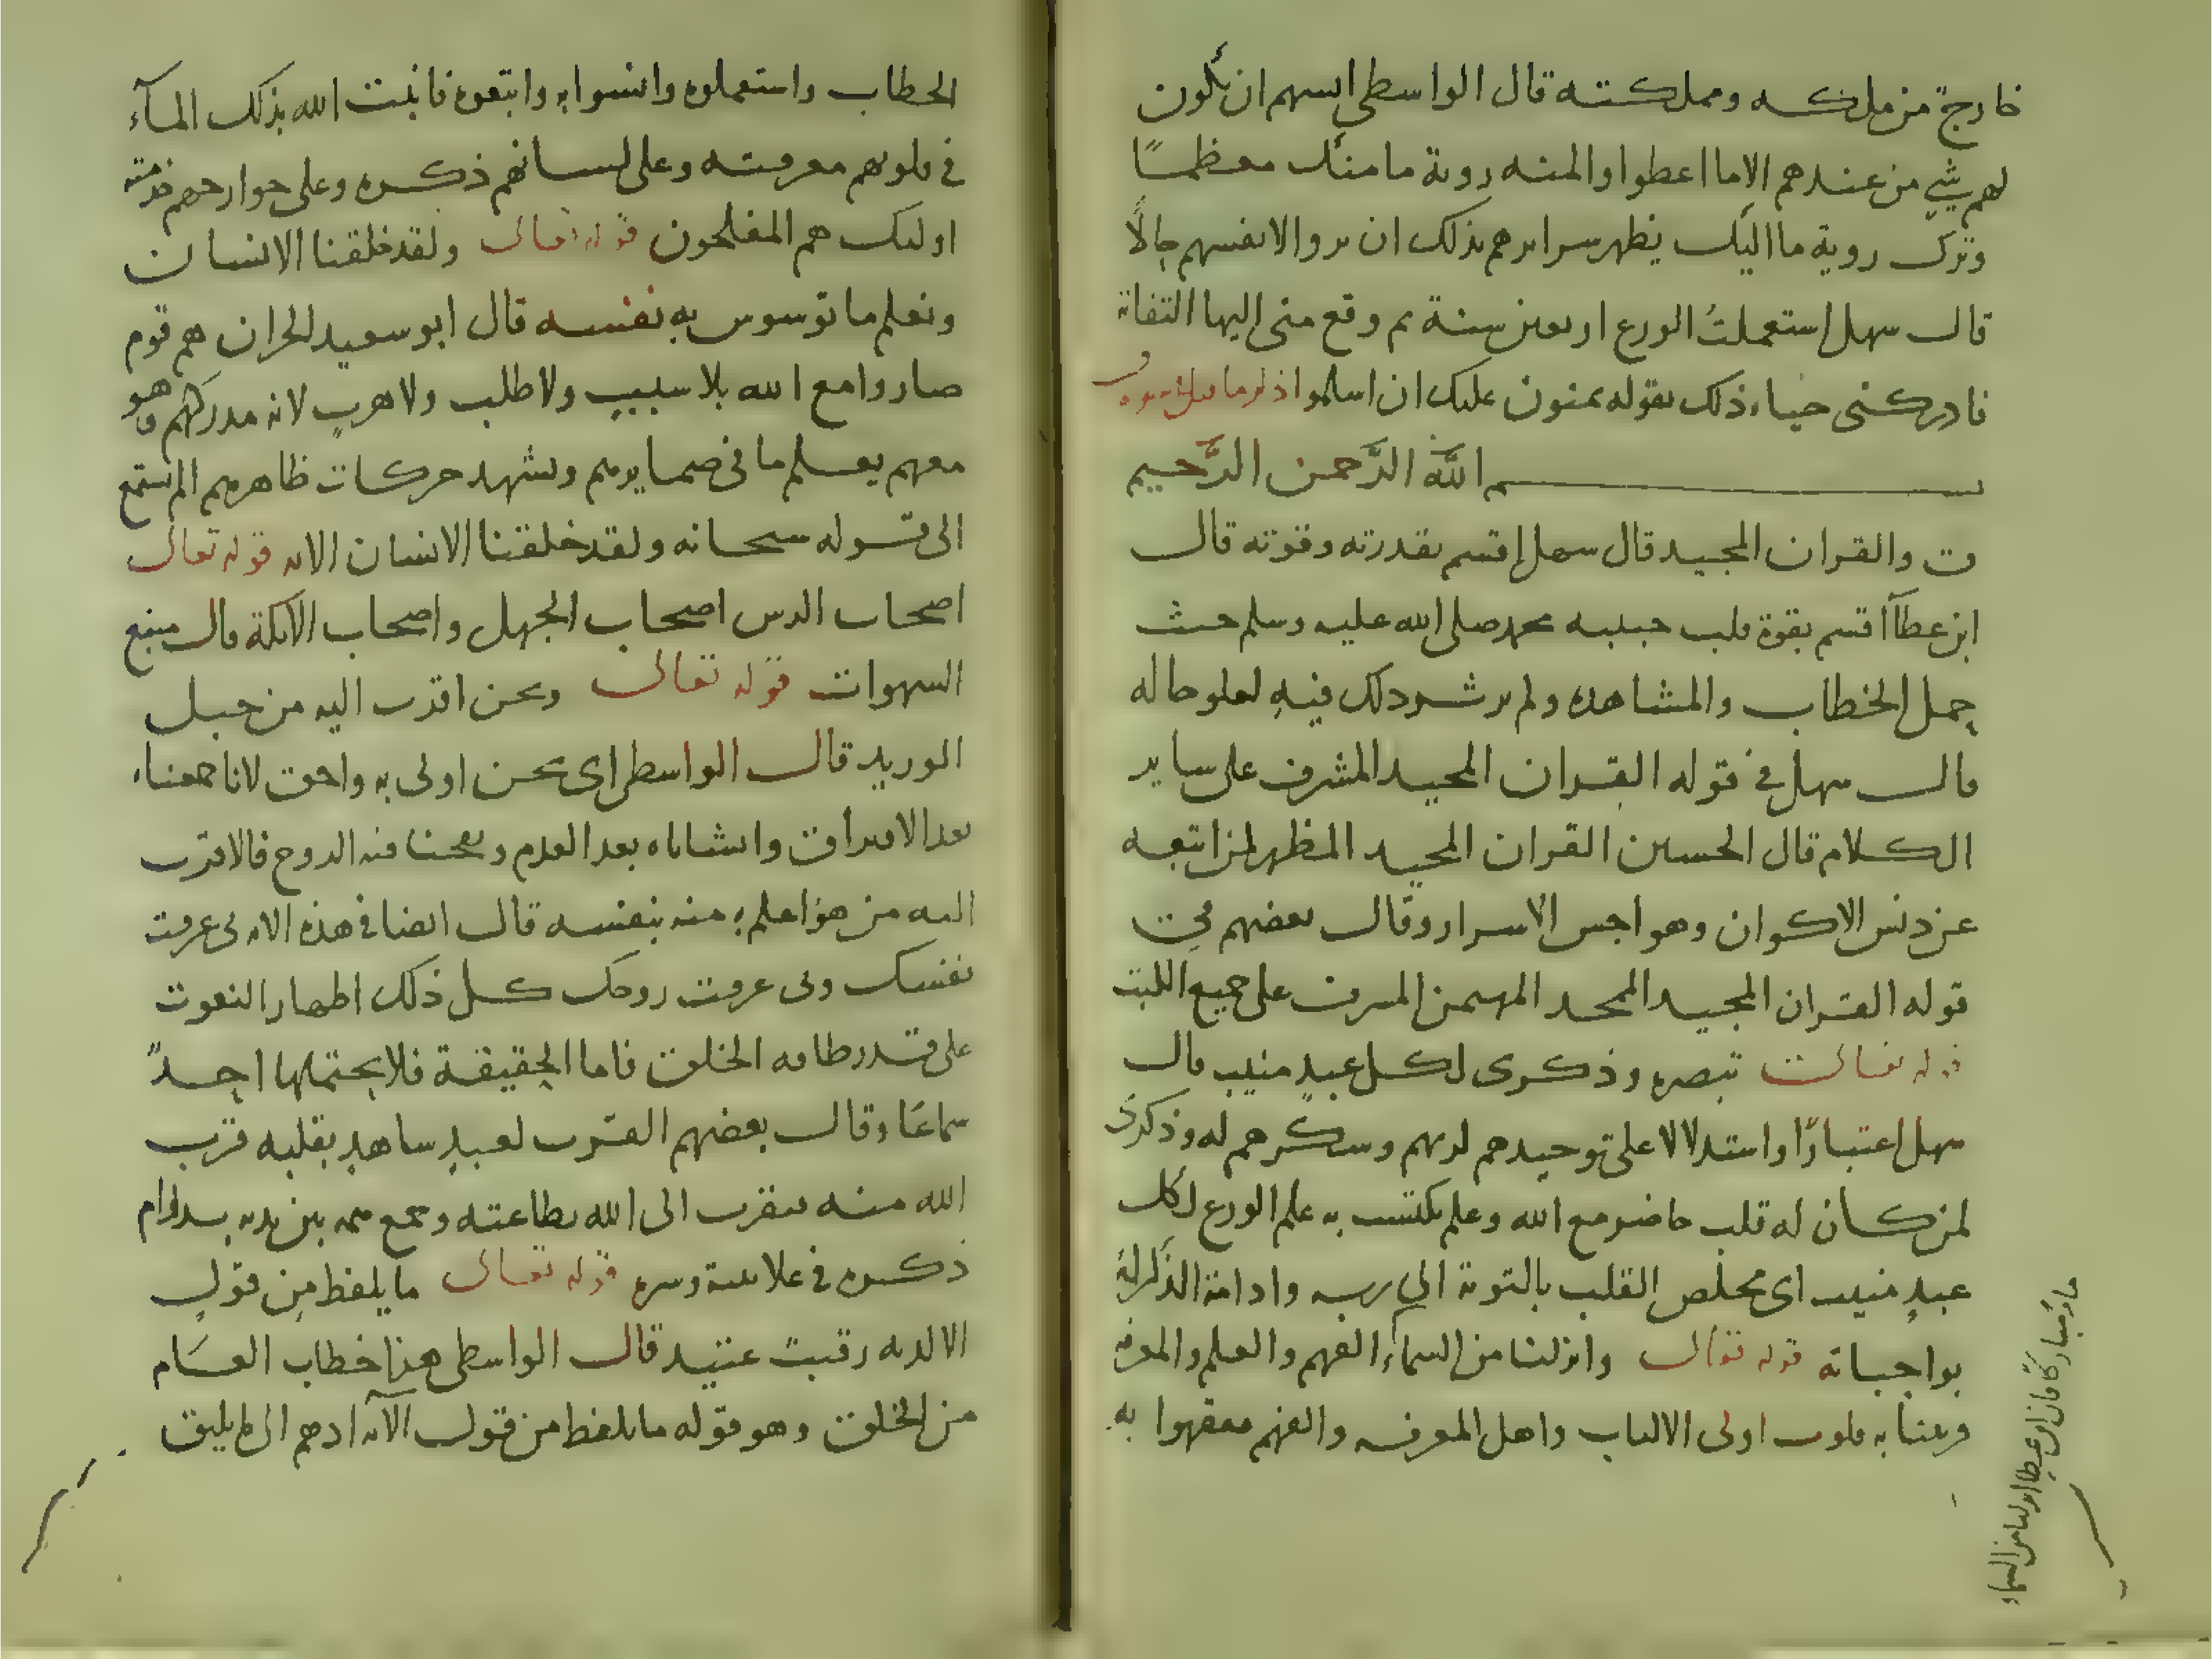 خارجة من ملكه ومملكته قال الواسطي ايسهم ان يكون
لهم شي من عندهم الا ما اعطوا والمنه روية ما منك معظمًا
وترك روية ما اليك يظهر سرايرهم بذلك ان يروا لانفسهم حالًا
قال سهل استعملت الورع اربعين سنة ثم وقع مني اليها التفاتة
فادركني حياء ذلك بقوله يمنون عليك ان اسلموا
بسم الله الرَّحمن الرَّحيم
ق والقران المجيد قال سهل اقسم بقدرته وقوته قال
ابن عطاء اقسم بقوة قلب حبيبه محمد صلى الله عليه وسلم حيث
حمل الخطاب والمشاهده ولم يوثر ذلك فيه لعلو حاله
قال سهل في قوله القران المجيد المشرف على ساير
الكلام قال الحسين القران المجيد المظهر لمن اتبعه
عن دنس الاكوان وهواجس الاسرار وقال بعضهم في
قوله القران المجيد المهيمن المشرف على جميع الكتب
قوله تعالى تبصره وذكرى لكل عبدٍ منيب قال
سهل اعتبارًا واستدلالا على توحيدهم لربهم وشكرهم له وذكرى
لمن كان له قلب حاضر مع الله وعلم يكتسب به علم الورع لكل
عبدٍ منيب اي مخلص القلب بالتوبة الى ربه وادامة الذكر له
بواجباته قوله تعالى وانزلنا من السماء الفهم والعلم والمعرفة
به قلوب اولى الالباب واهل المعرفه والفهم ففقهوا به
ماء مباركا قال ابن عطا انزلنا من السماء
الخطاب واستعملوه وانسوا به واتبعوه فانبت الله بذلك الماء
في قلوبهم معرفته وعلى لسانهم ذكره وعلى جوارحهم خدمته
اوليك هم المفلحون قوله تعالى ولقد خلقنا الانسان
ونعلم ما توسوس به نفسه قال ابو سعيد الخراز هم قوم
صاروا مع الله بلا سبب ولا طلب ولا هرب لانه مدركهم وهو
معهم يعلم ما في ضمايرهم ويشهد حركات ظاهرهم الم تستمع
الى قوله سبحانه ولقد خلقنا الانسان الايه قوله تعالى
اصحاب الرس اصحاب الجهل واصحاب الايكة قال متبع
الشهوات قوله تعالى ونحن اقرب اليه من حبل
الوريد قال الواسطي اي نحن اولى به واحق لانا جمعناه
بعد الافتراق وانشاناه بعد العدم ونفخنا فيه الروح فالاقرب
اليه من هو اعلم به منه بنفسه قال ايضا في هذه الايه بي عرفت
نفسك وبي عرفت روحك كل ذلك اظهار النعوت
على قدر طاقه الخلق فاما الحقيقة فلا يحتملها احدٌ
سماعًا وقال بعضهم القرب لعبدٍ شاهدٍ بقلبه قرب
الله منه فتقرب الى الله بطاعته وجمع همه بين يديه بدوام
ذكره في علانيته وسره قوله تعالى ما يلفظ من قولٍ
الا لديه رقيب عتيد قال الواسطي هذا خطاب العام
من الخلق وهو قوله ما يلفظ من قول الايه ادهم الى ما يليق